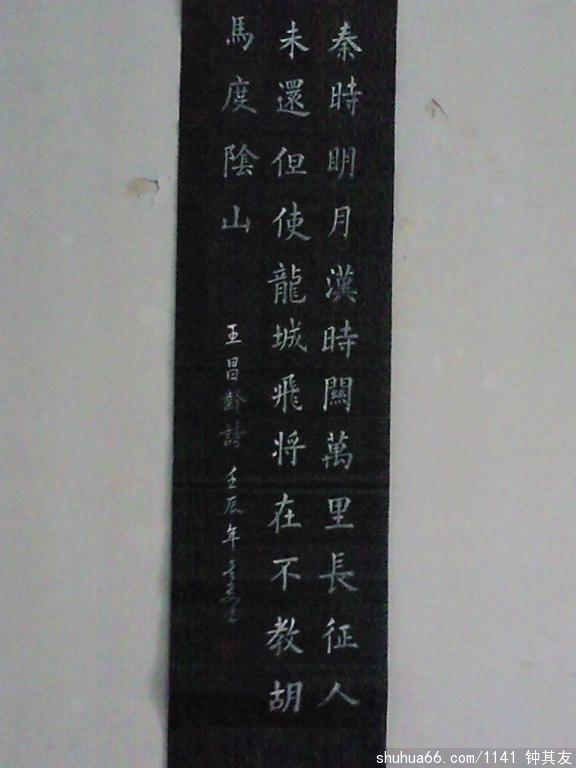 秦時明月漢時關萬里長征人
未還但使龍城飛将在不教胡
馬度陰山
王昌齡詩壬辰年
shuhua66.com/1141 钟其友